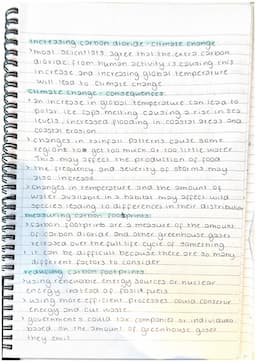 increasing carbon dioxide - climate change
• most scientists agree that the extra carbon
dioxide from human activity is causing this
increase and increasing global temperature
will lead to climate change
climate change - consequences
• an increase in global temperature can lead to
polar ice caps melting causing a rise in sea
levels, increased flooding in coastal areas and
coastal erosion
• changes in rainfall patterns cause some
regions to get too much or too little water
This may affect the production of food
• the frequency and severity of storms may
also increase
• changes in temperature and the amount of
water available in a habitat may affect wild
species leading to differences in their distribution
measuring carbon footprints:
• carbon footprints are a measure of the amount
of carbon dioxide and other greenhouse gases
released over the full life cycle of something
• it can be difficult because there are so many
different factors to consider
reducing carbon footprints
• using renewable energy sources or nuclear
energy instead of fossil fuels
• using more efficient processes could conserve
energy and cut waste
• governments could tax companies or individuals
based on the amount of greenhouse gases
they emit